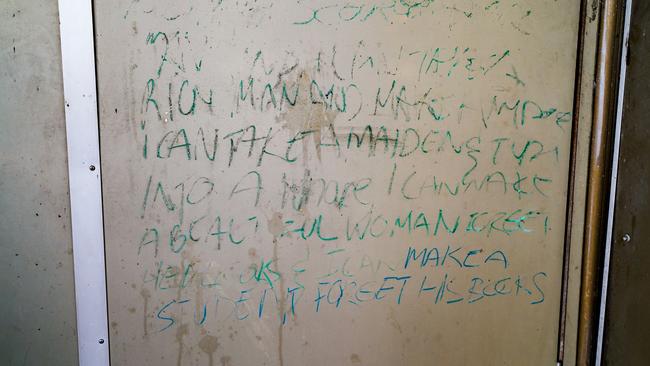 I CAN TAKE A
RICH MAN AND MAKE HIM POOR
I CAN TAKE A MAIDENS
INTO A whore I CAN MAKE
A BEAUTIFUL WOMAN FORGET
HER LOOKS I CAN MAKE A
STUDENT FORGET HIS BOOKS